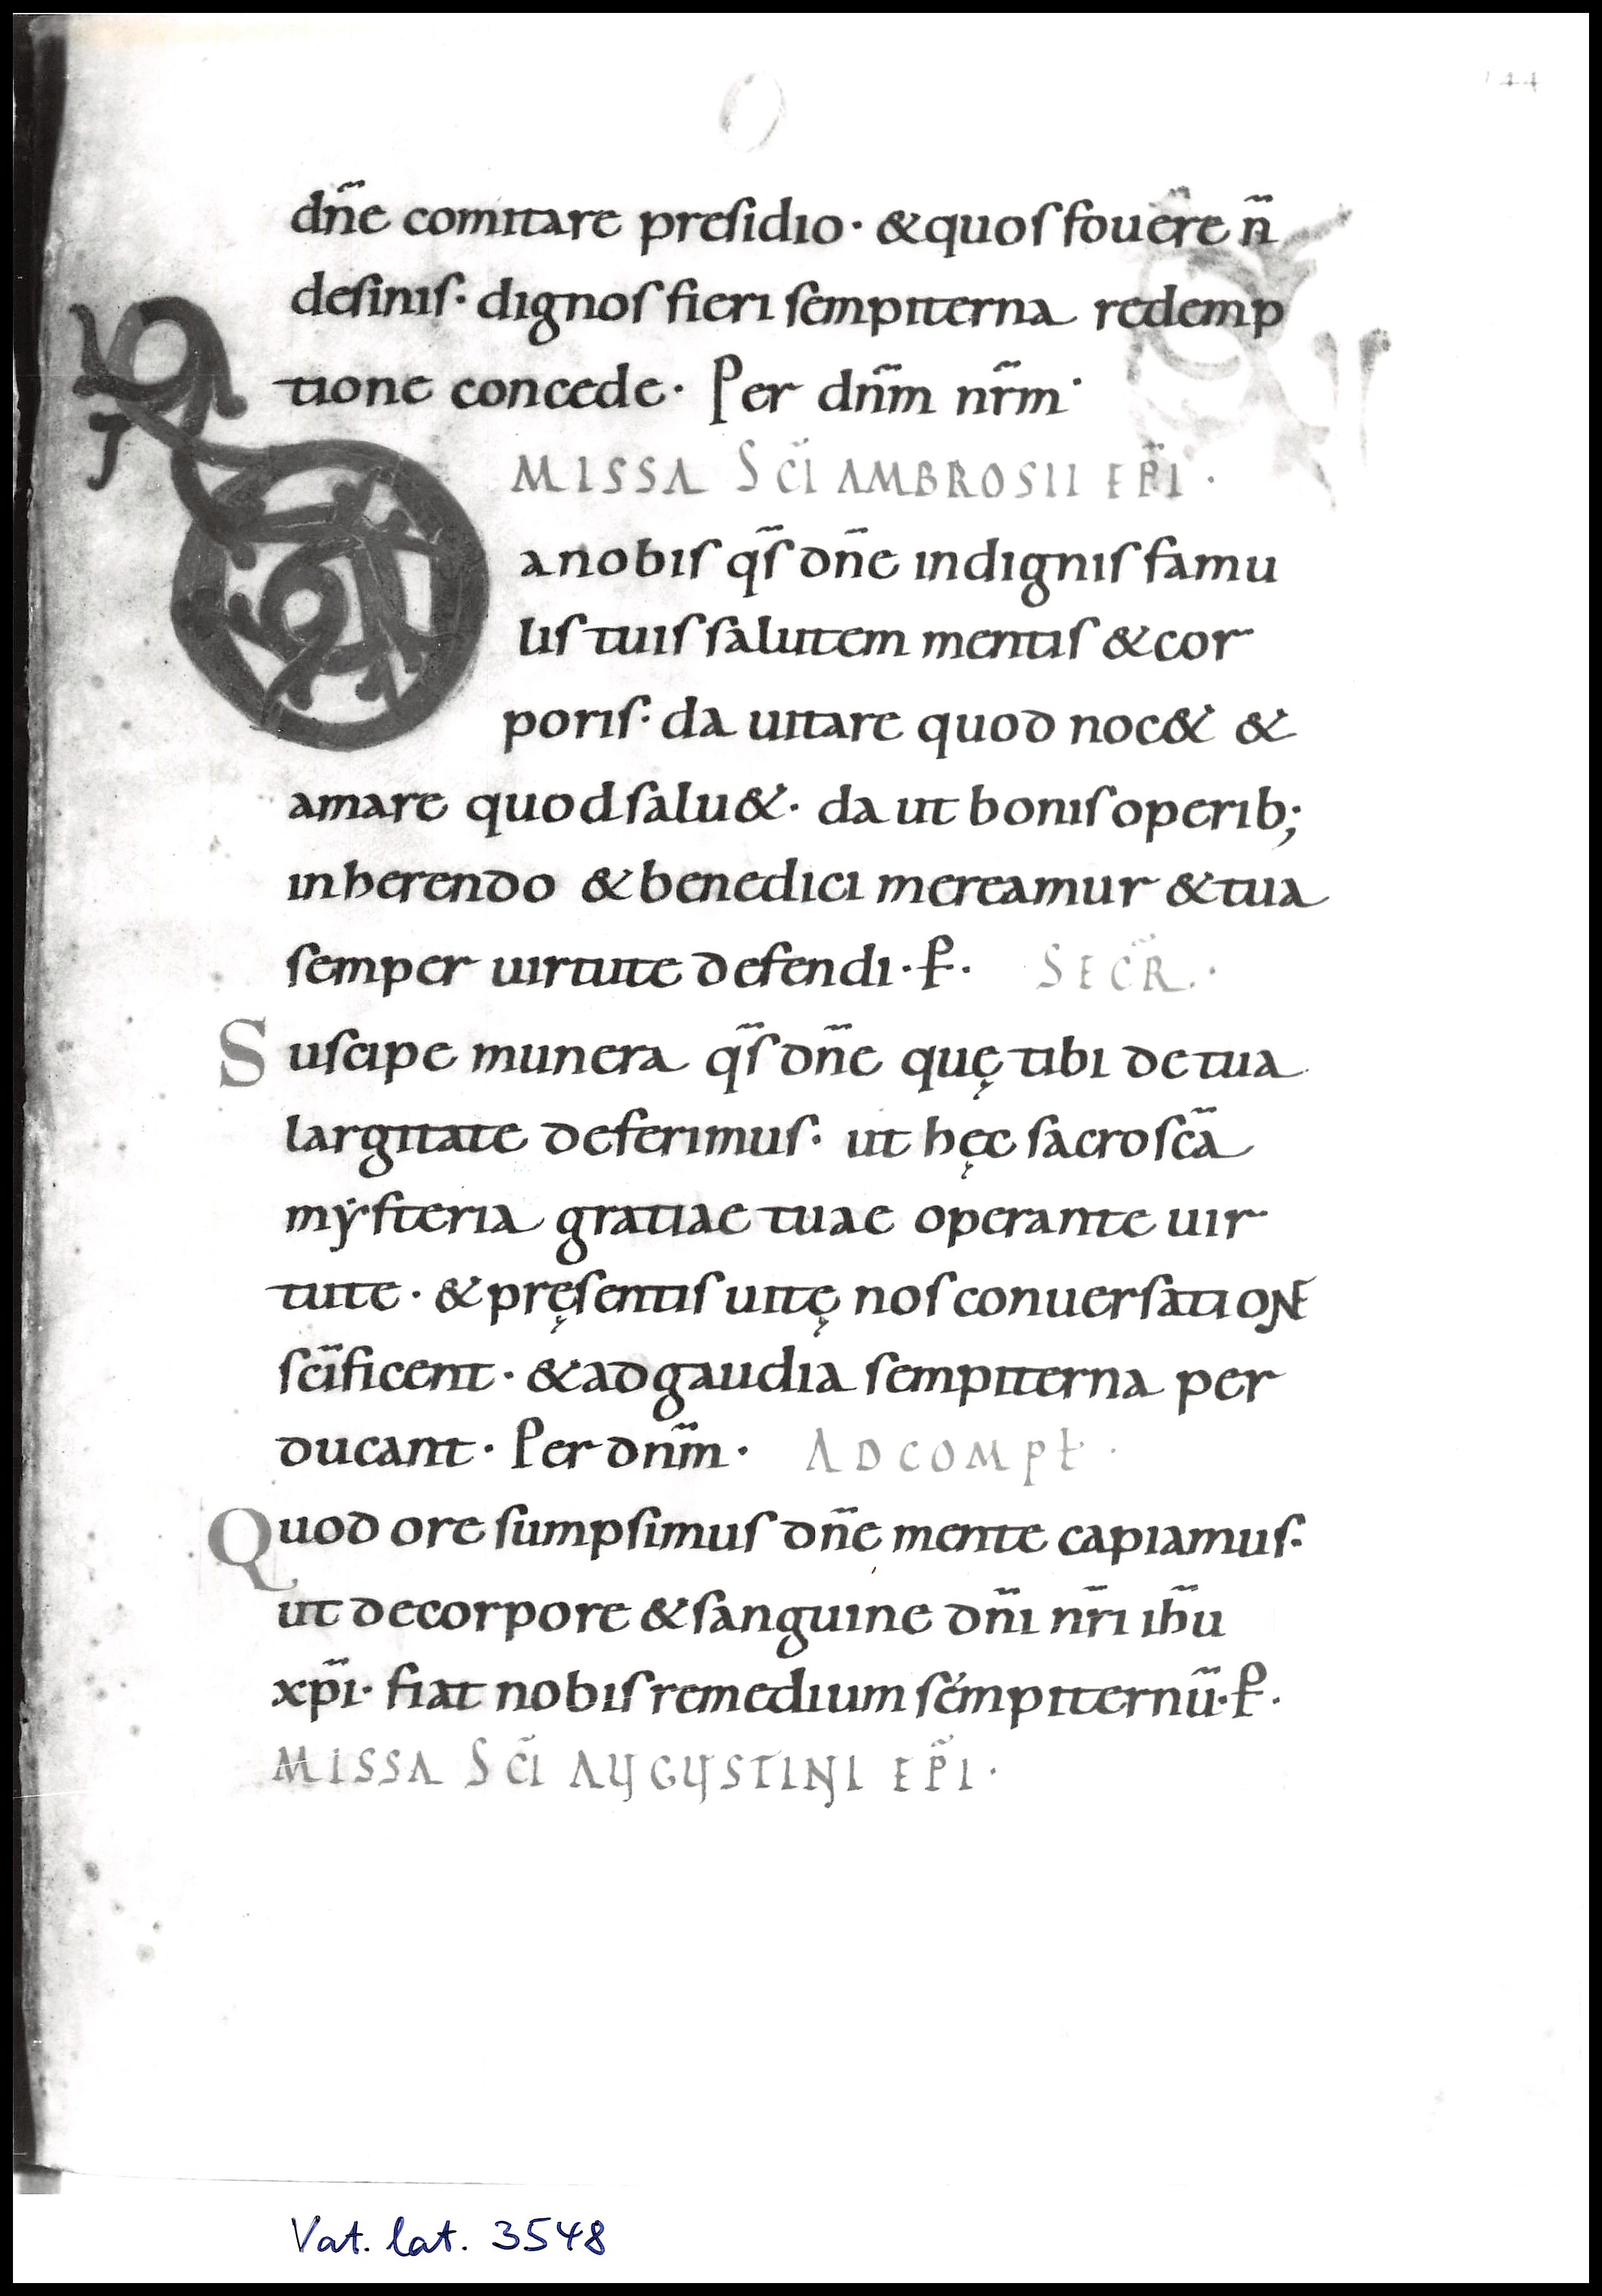 144
dn̄e comitare presidio · & quos fouēre n̄
desinis · dignos fieri sempiterna redemp
tione concede · Per dn̄m nr̄m ·
MISSA SC̄I AMBROSII EP̄I ·
D a nobis qs̄ dn̄e indignis famu
lis tuis salutem mentis & cor
poris · da uitare quod noc& &
amare quod salu& · da ut bonis operib;
inherendo & benedici mereamur & tua
semper uirtute defendi · P̄ · SECR̄ ·
Suscipe munera qs̄ dn̄e quę tibi de tua
largitate deferimus · ut hęc sacrosc̄a
mẏsteria gratiae tuae operante uir
tute · & pręsentis uitę nos conuersatione
sc̄ificent · & ad gaudia sempiterna per
ducant · Per dn̄m · AD COMPŁ ·
Quod ore sumpsimus dn̄e mente capiamus ·
ut de corpore & sanguine dn̄i nr̄i ihū
xp̄i · fiat nobis remedium sempiternū · P̄ ·
MISSA SC̄I AUGUSTINI EP̄I ·
Vat. lat. 3548